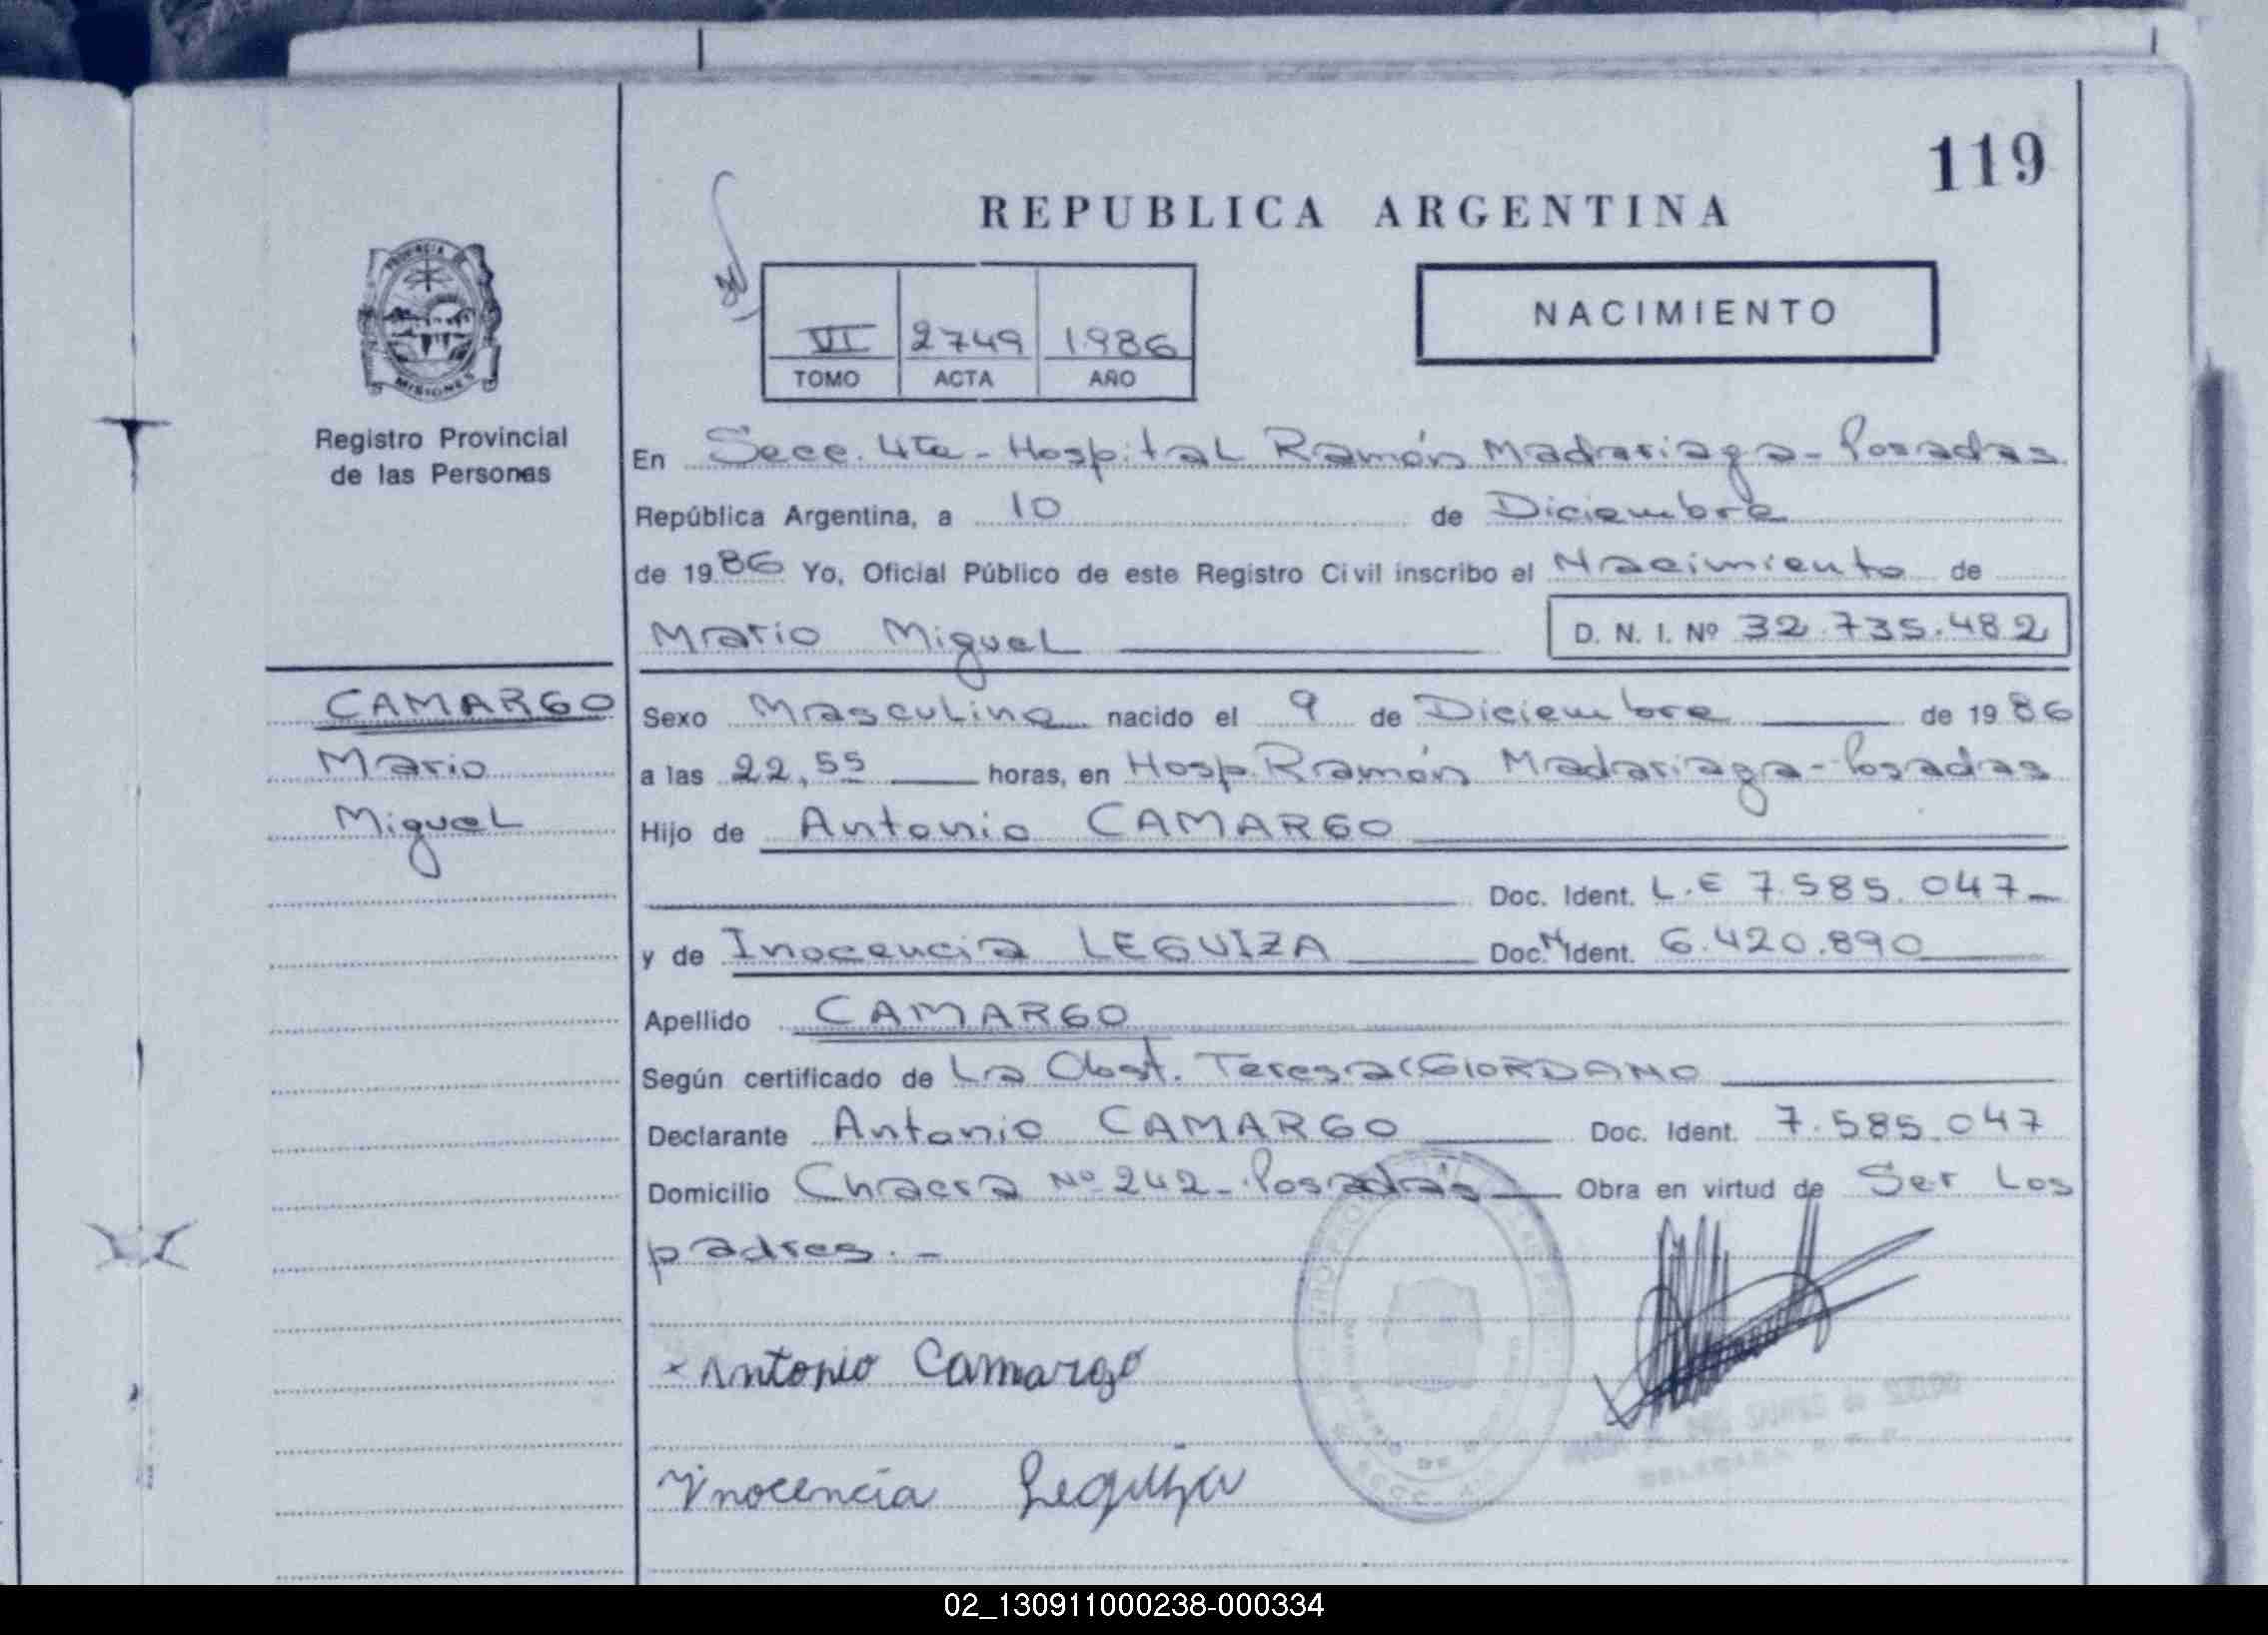 119
REPUBLICA ARGENTINA
PROVINCIA DE
MISIONES
Registro Provincial
de las Personas
VI 2749 1986
TOMO ACTA AÑO
NACIMIENTO
En Secc. 4ta - Hospital Ramón Madariaga - Posadas
República Argentina, a 10 de Diciembre
de 1986 Yo, Oficial Público de este Registro Civil inscribo el Nacimiento de
Mario Miguel
D. N. I. Nº 32.735.482
CAMARGO
Mario
Miguel
Sexo Masculino nacido el 9 de Diciembre de 1986
a las 22,55 horas, en Hosp. Ramón Madariaga - Posadas
Hijo de Antonio CAMARGO
Doc. Ident. L.E 7.585.047
y de Inocencia LEGUIZA Doc. Nº Ident. 6.420.890
Apellido CAMARGO
Según certificado de La Obst. Teresa GIORDANO
Declarante Antonio CAMARGO Doc. Ident. 7.585.047
Domicilio Chacra Nº 242 - Posadas Obra en virtud de Ser Los
padres. -
x Antonio Camargo
Ynocencia Leguiza
02_130911000238-000334